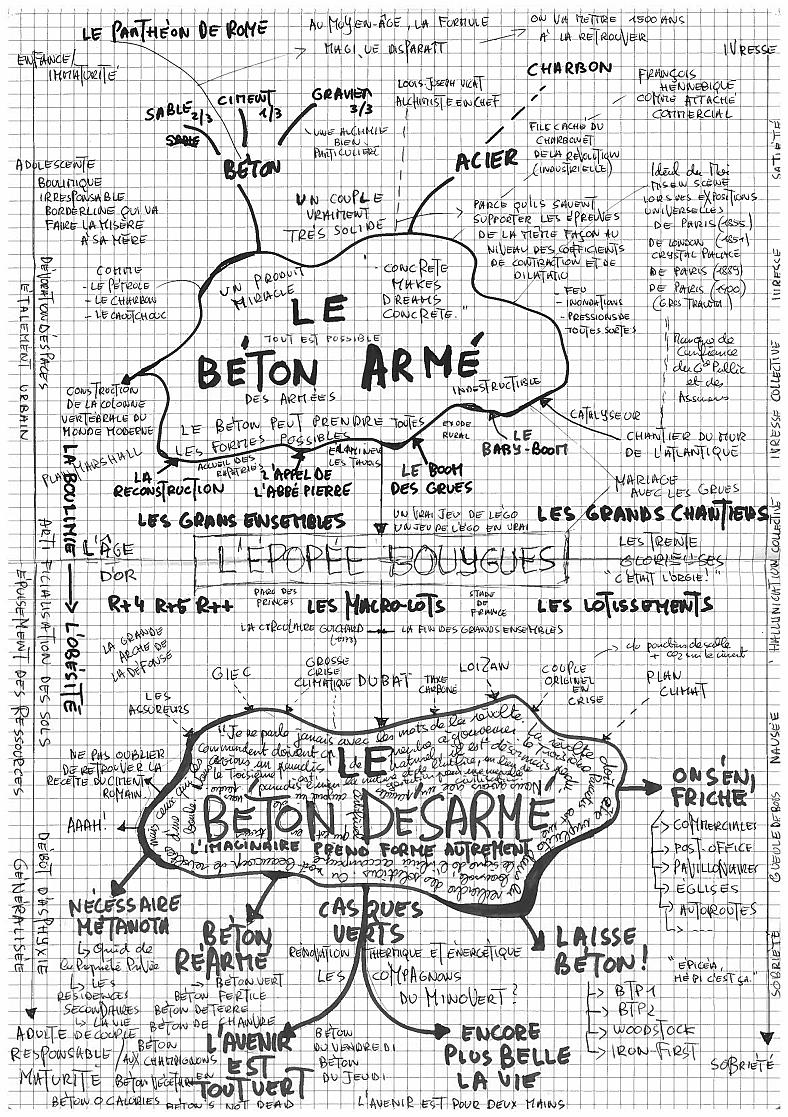 LE PANTHÉON DE ROME
AU MOYEN-ÂGE, LA FORMULE
MAGIQUE DISPARAÎT
ON VA METTRE 1500 ANS
À LA RETROUVER
ENFANCE/
IMMATURITÉ
IVRESSE
SABLE 2/3
CIMENT
1/3
GRAVIER
3/3
BÉTON
UNE ALCHIMIE
BIEN
PARTICULIÈRE
LOUIS-JOSEPH VICAT
ALCHIMISTE EN CHEF
CHARBON
ACIER
FRANÇOIS
HENNEBIQUE
COMME ATTACHÉ
COMMERCIAL
FILS CACHÉ DU
CHARBON ET
DE LA RÉVOLUTION
(INDUSTRIELLE)
SATIÉTÉ
ADOLESCENTE
BOULIMIQUE
IRRESPONSABLE
BORDERLINE QUI VA
FAIRE LA MISÈRE
À SA MÈRE
UN COUPLE
VRAIMENT
TRÈS SOLIDE
PARCE QU'ILS SAVENT
SUPPORTER LES ÉPREUVES
DE LA MÊME FAÇON AU
NIVEAU DES COEFFICIENTS
DE CONTRACTION ET DE
DILATATION
- FEU
- INONDATIONS
- PRESSIONS DE
TOUTES SORTES
Idéal du Moi
MIS EN SCÈNE
LORS DES EXPOSITIONS
UNIVERSELLES
DE PARIS (1855)
DE LONDON (1851)
CRYSTAL PALACE
DE PARIS (1889)
DE PARIS (1900)
(GROS TRAUMA)
IVRESSE
COMME
- LE PÉTROLE
- LE CHARBON
- LE CAOUTCHOUC
DÉVORATION D'ESPACES
ÉTALEMENT URBAIN
UN PRODUIT
MIRACLE
"CONCRETE
MAKES
DREAMS
CONCRETE."
LE
TOUT EST POSSIBLE
BÉTON ARMÉ
DES ARMÉES
INDESTRUCTIBLE
LE BÉTON PEUT PRENDRE TOUTES
LES FORMES POSSIBLES
Manque de
Confiance
du Gd Public
et des
Assureurs
IVRESSE COLLECTIVE
CONSTRUCTION
DE LA COLONNE
VERTÉBRALE DU
MONDE MODERNE
PLAN MARSHALL
LA
RECONSTRUCTION
ACCUEIL DES
RAPATRIÉS
L'APPEL DE
L'ABBÉ PIERRE
ÉLIMINER
LES TAUDIS
LE BOOM
DES GRUES
EXODE
RURAL
LE
BABY-BOOM
CATALYSEUR
CHANTIER DU MUR
DE L'ATLANTIQUE
MARIAGE
AVEC LES GRUES
LA BOULIMIE → L'OBÉSITÉ
LES GRANS ENSEMBLES
UN VRAI JEU DE LEGO
UN JEU DE LEGO EN VRAI
LES GRANDS CHANTIERS
L'ÂGE
D'OR
L'ÉPOPÉE BOUYGUES
LES TRENTE
GLORIEUSES
"C'ÉTAIT L'ORGIE!"
HALLUCINATION COLLECTIVE
R+4 R+5 R++
PARC DES
PRINCES
LES MACRO-LOTS
STADE
DE
FRANCE
LES LOTISSEMENTS
LA CIRCULAIRE GUICHARD
(1973)
LA FIN DES GRANDS ENSEMBLES
ARTIFICIALISATION DES SOLS
ÉPUISEMENT DES RESSOURCES
LA GRANDE
ARCHE DE
LA DÉFENSE
LES
ASSUREURS
GIEC
GROSSE
CRISE
CLIMATIQUE
DUBAT
TAXE
CARBONE
LOIZAN
COUPLE
ORIGINEL
EN
CRISE
PLAN
CLIMAT
NAUSÉE
NE PAS OUBLIER
DE RETROUVER LA
RECETTE DU CIMENT
ROMAIN
AAAH!
"Je ne parle jamais avec les mots de la révolte.
LE
BÉTON DÉSARMÉ
L'IMAGINAIRE PREND FORME AUTREMENT
ON S'EN
FRICHE
COMMERCIALES
POST-OFFICE
PAVILLONAIRES
ÉGLISES
AUTOROUTES
GUEULE DE BOIS
DÉBUT D'ASPHYXIE
GÉNÉRALISÉE
NÉCESSAIRE
MÉTANOÏA
Quid de
la Propriété Privée
LES
RÉSIDENCES
SECONDAIRES
LA VIE
DE COUPLE
BÉTON
RÉARMÉ
BÉTON VERT
BÉTON FERTILE
BÉTON DE TERRE
BÉTON DE CHANVRE
BÉTON
AUX CHAMPIGNONS
BÉTON VÉGÉTARIEN
BÉTON 0 CALORIES
BÉTON'S NOT DEAD
CASQUES
VERTS
RÉNOVATION THERMIQUE ET ÉNERGÉTIQUE
LES COMPAGNONS
DU MINOVERT?
LAISSE
BÉTON!
BTP1
BTP2
WOODSTOCK
IRON-FIRST
"EPICÉA,
HÉ PI C'EST ÇA."
SOBRIÉTÉ
ADULTE
RESPONSABLE/
MATURITÉ
L'AVENIR
EST
TOUT VERT
BÉTON
DU VENDREDI
BÉTON
DU JEUDI
ENCORE
PLUS BELLE
LA VIE
SOBRIÉTÉ
L'AVENIR EST POUR DEUX MAINS